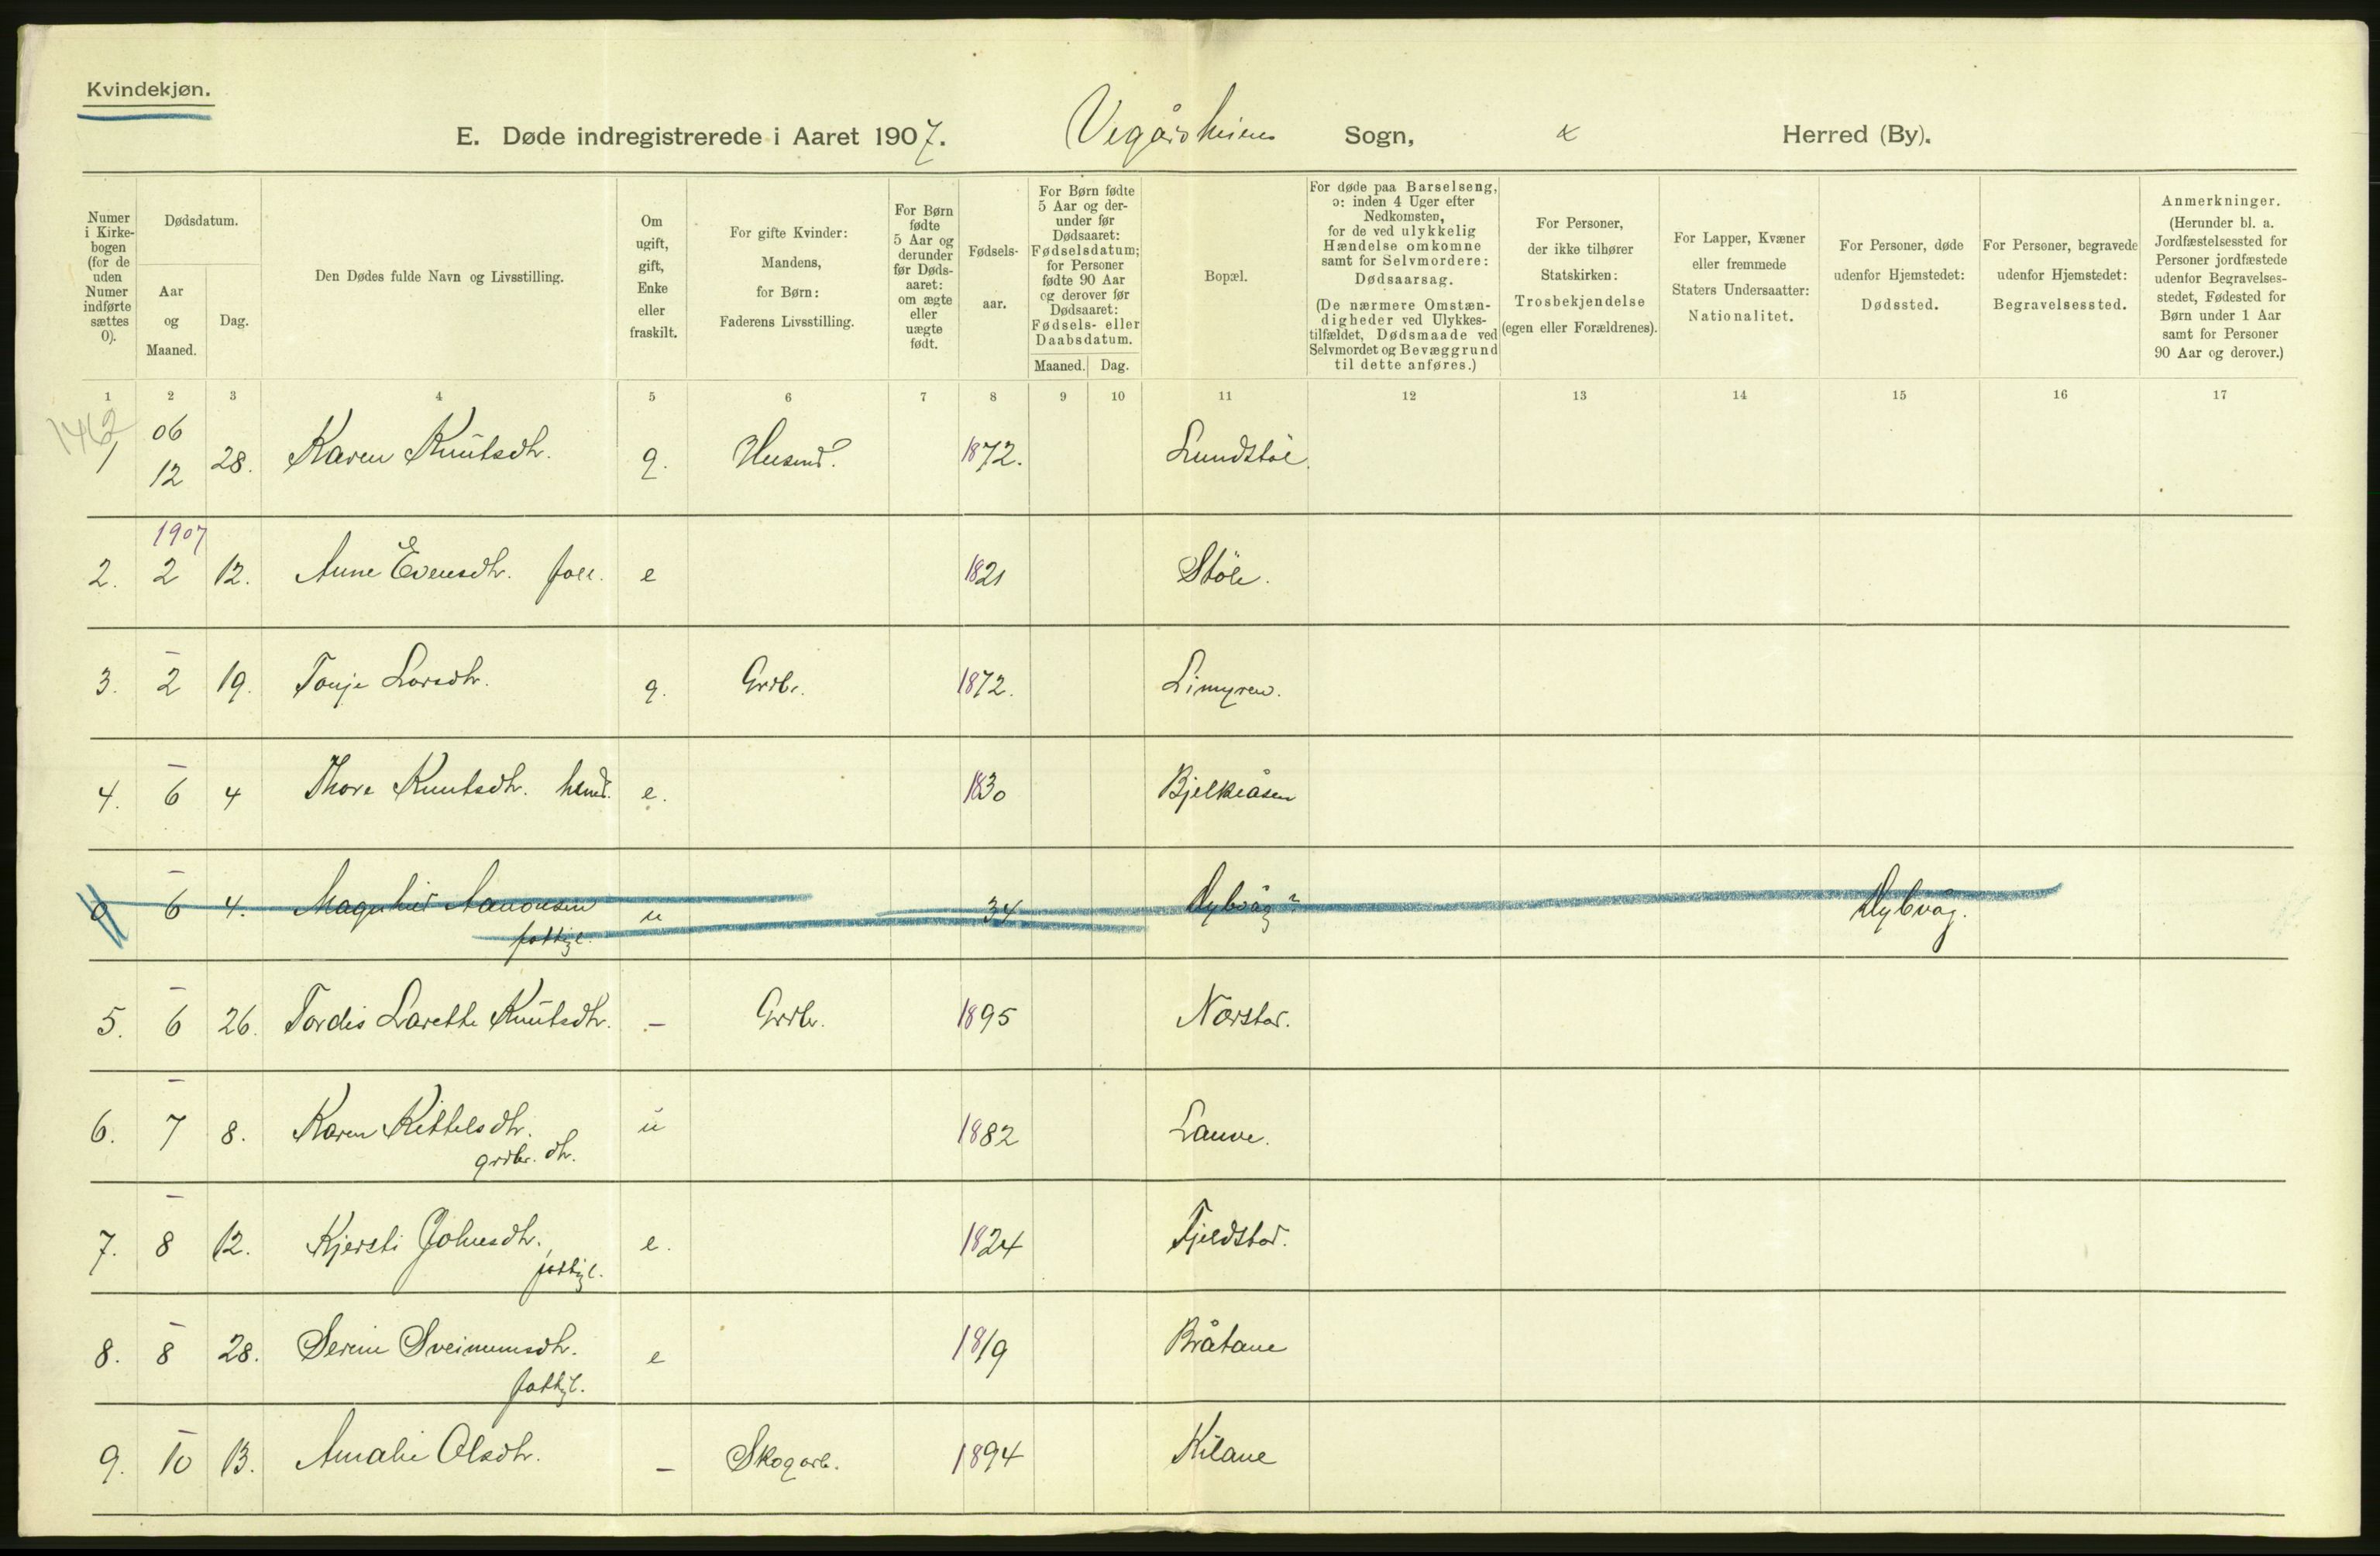 Kvindekjøn.
E. Døde indregistrerede i Aaret 1907. Vegårsheiens Sogn, Herred (By).
Numer i Kirke-bogen (for de uden Numer indførte sættes 0).
Dødsdatum.
Aar og Maaned.
Dag.
Den Dødes fulde Navn og Livsstilling.
Om ugift, gift, Enke eller fraskilt.
For gifte Kvinder: Mandens, for Børn: Faderens Livsstilling.
For Børn fødte 5 Aar og derunder før Døds-aaret: om ægte eller uægte født.
Fødsels-aar.
For Børn fødte 5 Aar og der-under før Dødsaaret: Fødselsdatum; for Personer fødte 90 Aar og derover før Dødsaaret: Fødsels- eller Daabsdatum.
Maaned. Dag.
Bopæl.
For døde paa Barselseng, ɔ: inden 4 Uger efter Nedkomsten, for de ved ulykkelig Hændelse omkomne samt for Selvmordere: Dødsaarsag. (De nærmere Omstæn-digheder ved Ulykkes-tilfældet, Dødsmaade ved Selvmordet og Bevæggrund til dette anføres.)
For Personer, der ikke tilhører Statskirken: Trosbekjendelse (egen eller Forældrenes).
For Lapper, Kvæner eller fremmede Staters Undersaatter: Nationalitet.
For Personer, døde udenfor Hjemstedet: Dødssted.
For Personer, begravede udenfor Hjemstedet: Begravelsessted.
Anmerkninger. (Herunder bl. a. Jordfæstelsessted for Personer jordfæstede udenfor Begravelses-stedet, Fødested for Børn under 1 Aar samt for Personer 90 Aar og derover.)
1 2 3 4 5 6 7 8 9 10 11 12 13 14 15 16 17
1462
1 06 12 28. Karen Knutsdtr. g. Husmd. 1872. Lundstøl.
1907
2. 2 12. Anne Evensdtr. e 1821 Støle.
3. – 2 19. Tonje Larsdtr. g. Grdbr. 1872. Limyren.
4. – 6 4 Thore Knutsdtr. e. 1830 Bjelkeåsen
0 – 6 4. Aanonsen u 34 Dybvåg? Dybvåg.
fattigl.
5. – 6 26. Tordis Larette Knutsdtr. – Grdbr. 1895 Nærstad.
6. – 7 8. Karen Kittelsdtr. u 1882 Lauve.
grdbr. dtr.
7. – 8 12. Kjersti Johnsdtr. e. 1824 Fjeldstad.
fattigl.
8. – 8 28. Serine Sveinumsdtr. e 1819 Bråtane
fattigl.
9. – 10 13. Amalie Olsdtr. – Skogarb. 1894 Kilane